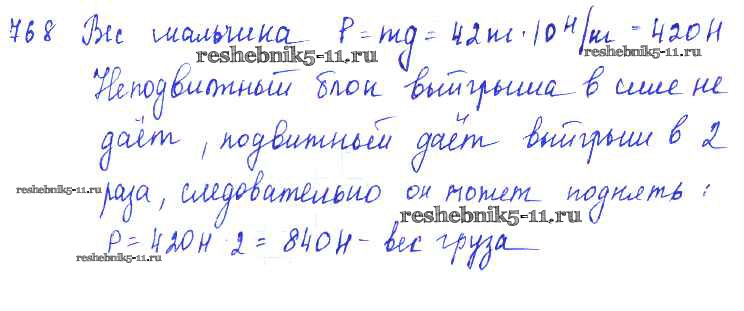 768 Вес мальчика P = mg = 42 кг · 10 Н/кг = 420 Н
reshebnik5-11.ru
Неподвижный блок выигрыша в силе не
даёт, подвижный даёт выигрыш в 2
reshebnik5-11.ru
reshebnik5-11.ru
раза, следовательно он может поднять:
reshebnik5-11.ru
P = 420 Н · 2 = 840 Н - вес груза
reshebnik5-11.ru